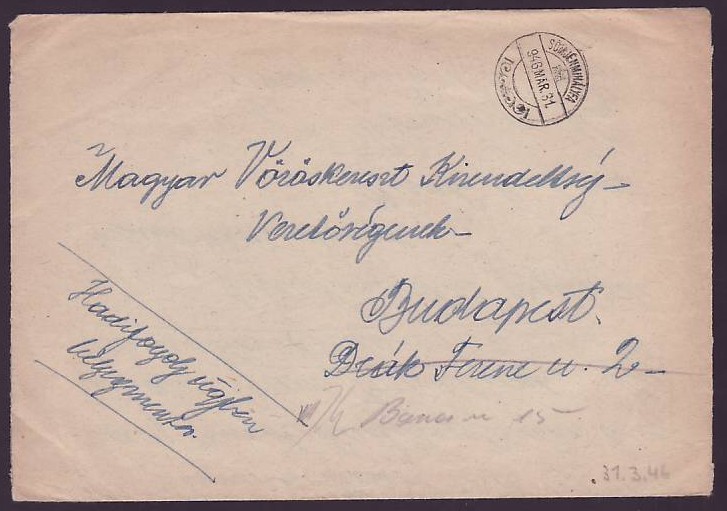 SÖMJÉNMIHÁLYFA
946 MÁR. 31.
Magyar Vöröskereszt Kirendeltség
Vezetőségének
Budapest.
Deák Ferenc u. 2
Hadifogoly ügyben
bélyegmentes.
u 15
31.3.46